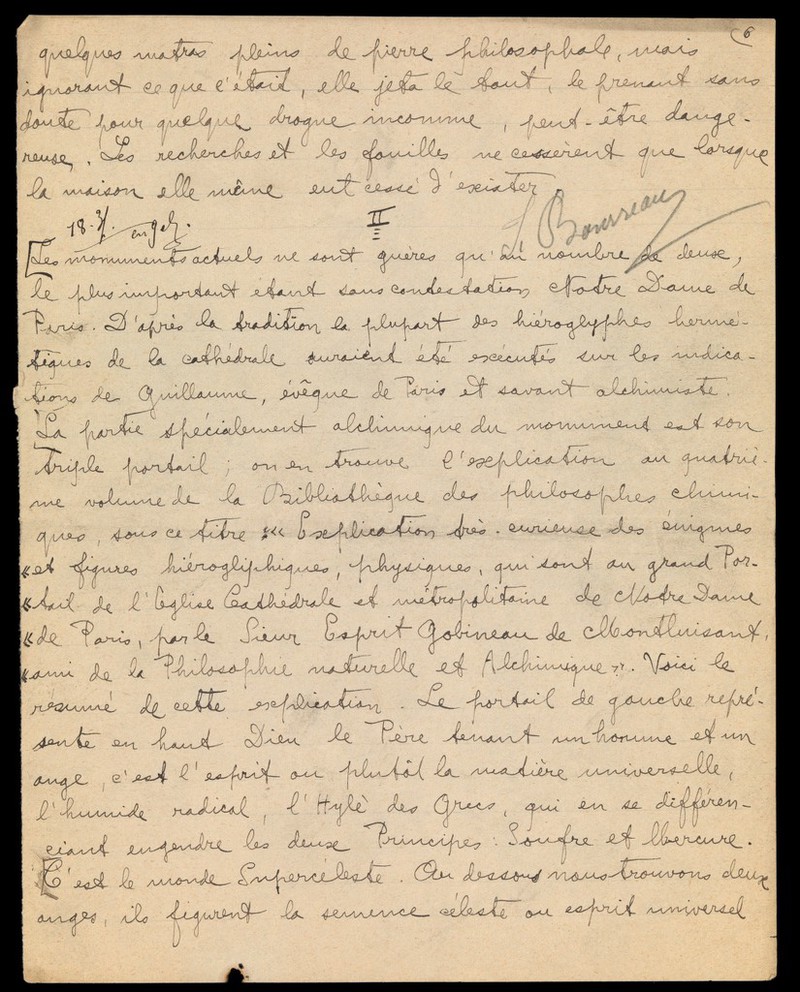 6
quelques matras pleins de pierre philosophale, mais
ignorant ce que c'était, elle jeta le tout, le prenant sans
doute pour quelque drogue inconnue, peut-être dange-
reuse. Les recherches et les fouilles ne cessèrent que lorsque
la maison elle même eut cessé d'exister.
Bousseau
18.
II
[Les monuments actuels ne sont guères qu'au nombre de deux,
le plus important etant sans contestation Notre Dame de
Paris. D'après la tradition la plupart des hiéroglyphes hermé-
tiques de la cathédrale auraient été exécutés sur les indica-
tions de Guillaume, évêque de Paris et savant alchimiste.
La partie spécialement alchimique du monument est son
triple portail ; on en trouve l'explication au quatriè-
me volume de la Bibliothèque des philosophes chimi-
ques, sous ce titre : « Explication très-curieuse des énigmes
« et figures hiérogliphiques, physiques, qui sont au grand Por-
« tail de l'Eglise Cathédrale et métropolitaine de Notre Dame
« de Paris, par le Sieur Esprit Gobineau de Montluisant,
« ami de la Philosophie naturelle et Alchimique ». Voici le
résumé de cette explication. Le portail de gauche repré-
sente en haut Dieu le Père tenant un homme et un
ange, c'est l'esprit ou plutôt la matière universelle,
l'humide radical, l'Hylè des Grecs, qui en se différen-
ciant engendre les deux Principes : Soufre et Mercure.
[C'est le monde Supercéleste. Au dessous nous trouvons deux
anges, ils figurent la semence céleste ou esprit universel